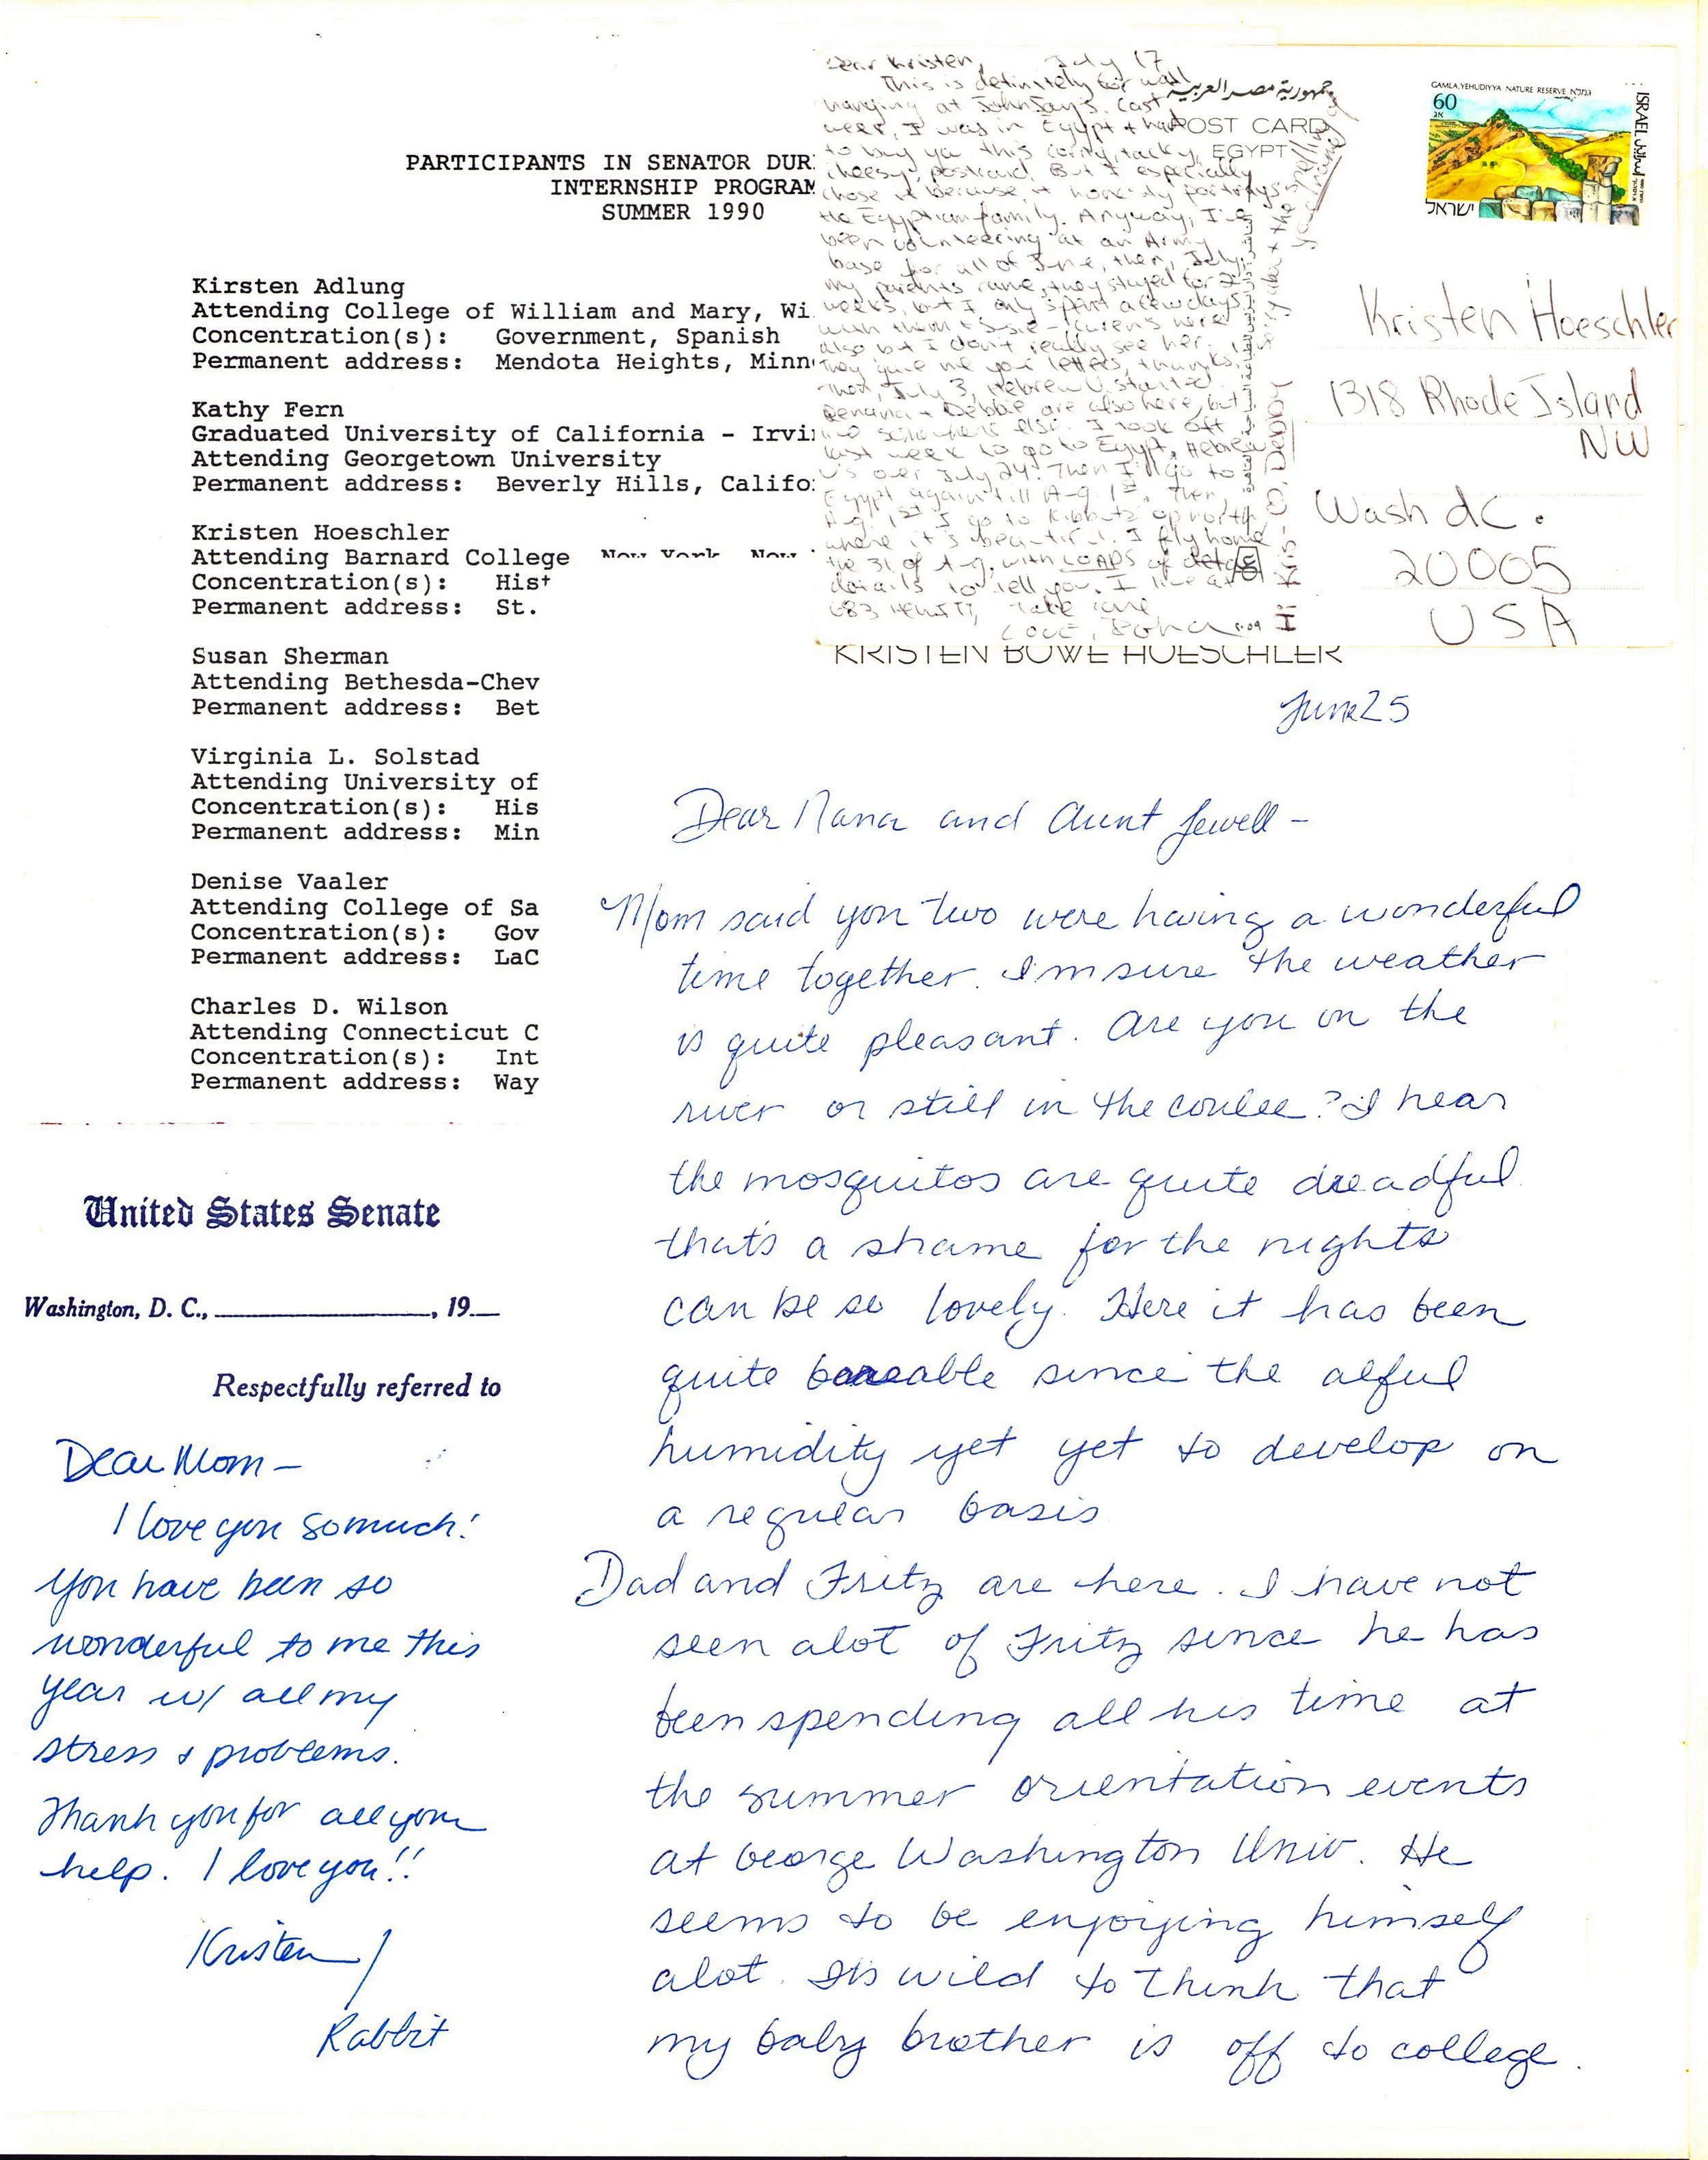 PARTICIPANTS IN SENATOR DUR
INTERNSHIP PROGRAM
SUMMER 1990
Kirsten Adlung
Attending College of William and Mary, Wi
Concentration(s): Government, Spanish
Permanent address: Mendota Heights, Minn
Kathy Fern
Graduated University of California - Irvi
Attending Georgetown University
Permanent address: Beverly Hills, Califo
Kristen Hoeschler
Attending Barnard College New York New
Concentration(s): Hist
Permanent address: St.
Susan Sherman
Attending Bethesda-Chev
Permanent address: Bet
Virginia L. Solstad
Attending University of
Concentration(s): His
Permanent address: Min
Denise Vaaler
Attending College of Sa
Concentration(s): Gov
Permanent address: LaC
Charles D. Wilson
Attending Connecticut C
Concentration(s): Int
Permanent address: Way
Dear Kristen, July 17
This is definitely for wall
hanging at JohnJay's. Last
week, I was in Egypt + had
to buy ya this corny, tacky,
cheesy, postcard. But I especially
chose it because it honestly portrays
the Egyptian family. Anyway, I've
been volunteering at an Army
base for all of June, then, July
my parents came, they stayed for 2
weeks, but I only spent a few days
with them + Susie - Karen's here
also but I don't really see her.
They gave me your letters, thanks.
Then, July 3, Hebrew U. started.
Renana + Debbie are also here, but
live somewhere else. I took off
last week to go to Egypt, Hebrew
U's over July 24. Then I'll go to
Egypt again till Aug 1st. Then,
Aug. 1st I go to Kibbutz up north
where it's beautiful. I fly home
the 31 of Aug. with LOADS of
details to tell you. I live at
Take care
Love,
جمهورية مصر العربية
POST CARD
EGYPT
GAMLA, YEHUDIYYA NATURE RESERVE גמלא
60
אג
ISRAEL
ישראל
Kristen Hoeschler
1318 Rhode Island
NW
Wash dC.
20005
USA
KRISTEN BOWE HOESCHLER
June 25
Dear Nana and Aunt Jewell -
Mom said you two were having a wonderful
time together. I'm sure the weather
is quite pleasant. Are you on the
river or still in the coulee? I hear
the mosquitos are quite dreadful
that's a shame for the nights
can be so lovely. Here it has been
quite bareable since the alful
humidity yet yet to develop on
a regular basis
Dad and Fritz are here. I have not
seen alot of Fritz since he has
been spending all his time at
the summer orientation events
at George Washington Univ. He
seems to be enjoying himself
alot. Its wild to think that
my baby brother is off to college.
United States Senate
Washington, D. C., ____________, 19__
Respectfully referred to
Dear Mom -
I love you so much!
You have been so
wonderful to me this
year w/ all my
stress + problems.
Thank you for all your
help. I love you!!
Kristen/
Rabbit